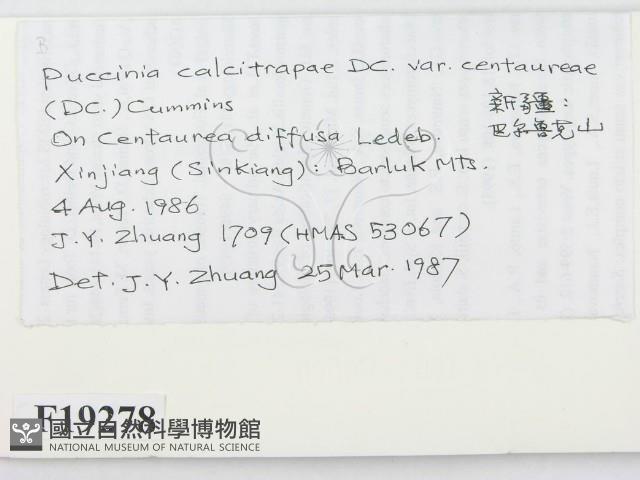 B
Puccinia calcitrapae DC. var. centaureae
(DC.) Cummins
新疆:
On Centaurea diffusa Ledeb.
巴尔鲁克山
Xinjiang (Sinkiang): Barluk Mts.
4 Aug. 1986
J. Y. Zhuang 1709 (HMAS 53067)
Det. J. Y. Zhuang 25 Mar. 1987
F19278
國立自然科學博物館
NATIONAL MUSEUM OF NATURAL SCIENCE